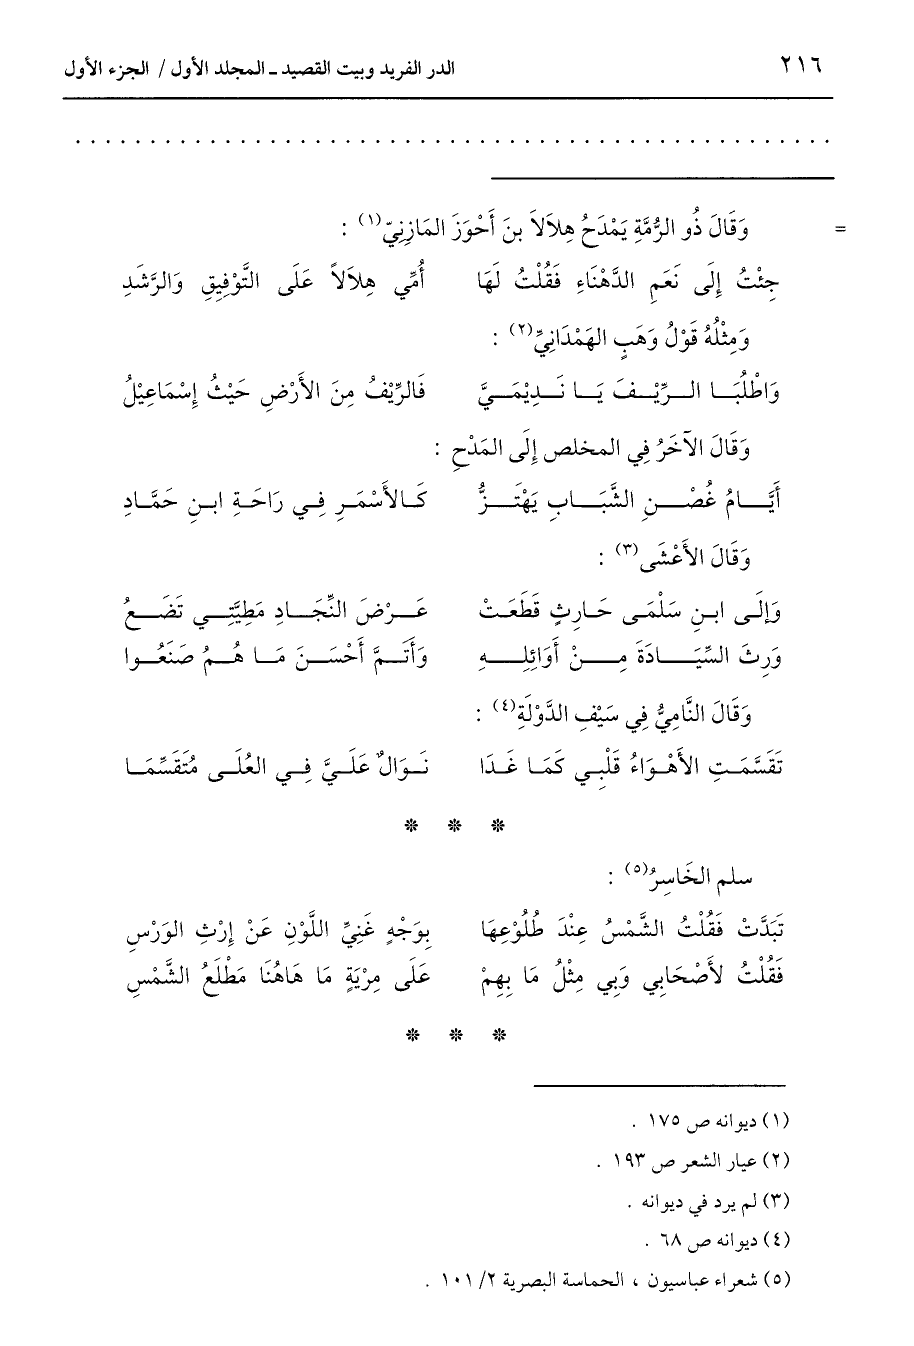 ٢١٦ الدر الفريد وبيت القصيد ـ المجلد الأول / الجزء الأول
. . . . . . . . . . . . . . . . . . . . . . . . . . . . . . . . . . . . . . . . . . . . . . . . . . .
= وَقَالَ ذُو الرُّمَّةِ يَمْدَحُ هِلاَلاَ بنَ أَحْوَزَ المَازِنِيّ(١) :
جِئْتُ إِلَى نَعَمِ الدَّهْنَاءِ فَقُلْتُ لَهَا أُمِّي هِلاَلاً عَلَى التَّوْفِيقِ وَالرَّشَدِ
وَمِثْلُهُ قَوْلُ وَهَبٍ الهَمْدَانِيِّ(٢) :
وَاطْلُبَا الرِّيْفَ يَا نَدِيْمَيَّ فَالرِّيْفُ مِنَ الأَرْضِ حَيْثُ إِسْمَاعِيْلُ
وَقَالَ الآخَرُ فِي المخلص إِلَى المَدْحِ :
أَيَّامُ غُصْنِ الشَّبَابِ يَهْتَزُّ كَالأَسْمَرِ فِي رَاحَةِ ابنِ حَمَّادِ
وَقَالَ الأَعْشَى(٣) :
وَإِلَى ابنِ سَلْمَى حَارِثٍ قَطَعَتْ عَرْضَ النِّجَادِ مَطِيَّتِي تَضَعُ
وَرِثَ السِّيَادَةَ مِنْ أَوَائِلِهِ وَأَتَمَّ أَحْسَنَ مَا هُمُ صَنَعُوا
وَقَالَ النَّامِيُّ فِي سَيْفِ الدَّوْلَةِ(٤) :
تَقَسَّمَتِ الأَهْوَاءُ قَلْبِي كَمَا غَدَا نَوَالُ عَلَيَّ فِي العُلَى مُتَقَسِّمَا
* * *
سلم الخَاسِرُ(٥) :
تَبَدَّتْ فَقُلْتُ الشَّمْسُ عِنْدَ طُلُوْعِهَا بِوَجْهٍ غَنِيِّ اللَّوْنِ عَنْ إِرْثِ الوَرْسِ
فَقُلْتُ لأَصْحَابِي وَبِي مِثْلُ مَا بِهِمْ عَلَى مِرْيَةٍ مَا هَاهُنَا مَطْلَعُ الشَّمْسِ
* * *
(١) ديوانه ص ١٧٥ .
(٢) عيار الشعر ص ١٩٣ .
(٣) لم يرد في ديوانه .
(٤) ديوانه ص ٦٨ .
(٥) شعراء عباسيون ، الحماسة البصرية ٢/ ١٠١ .